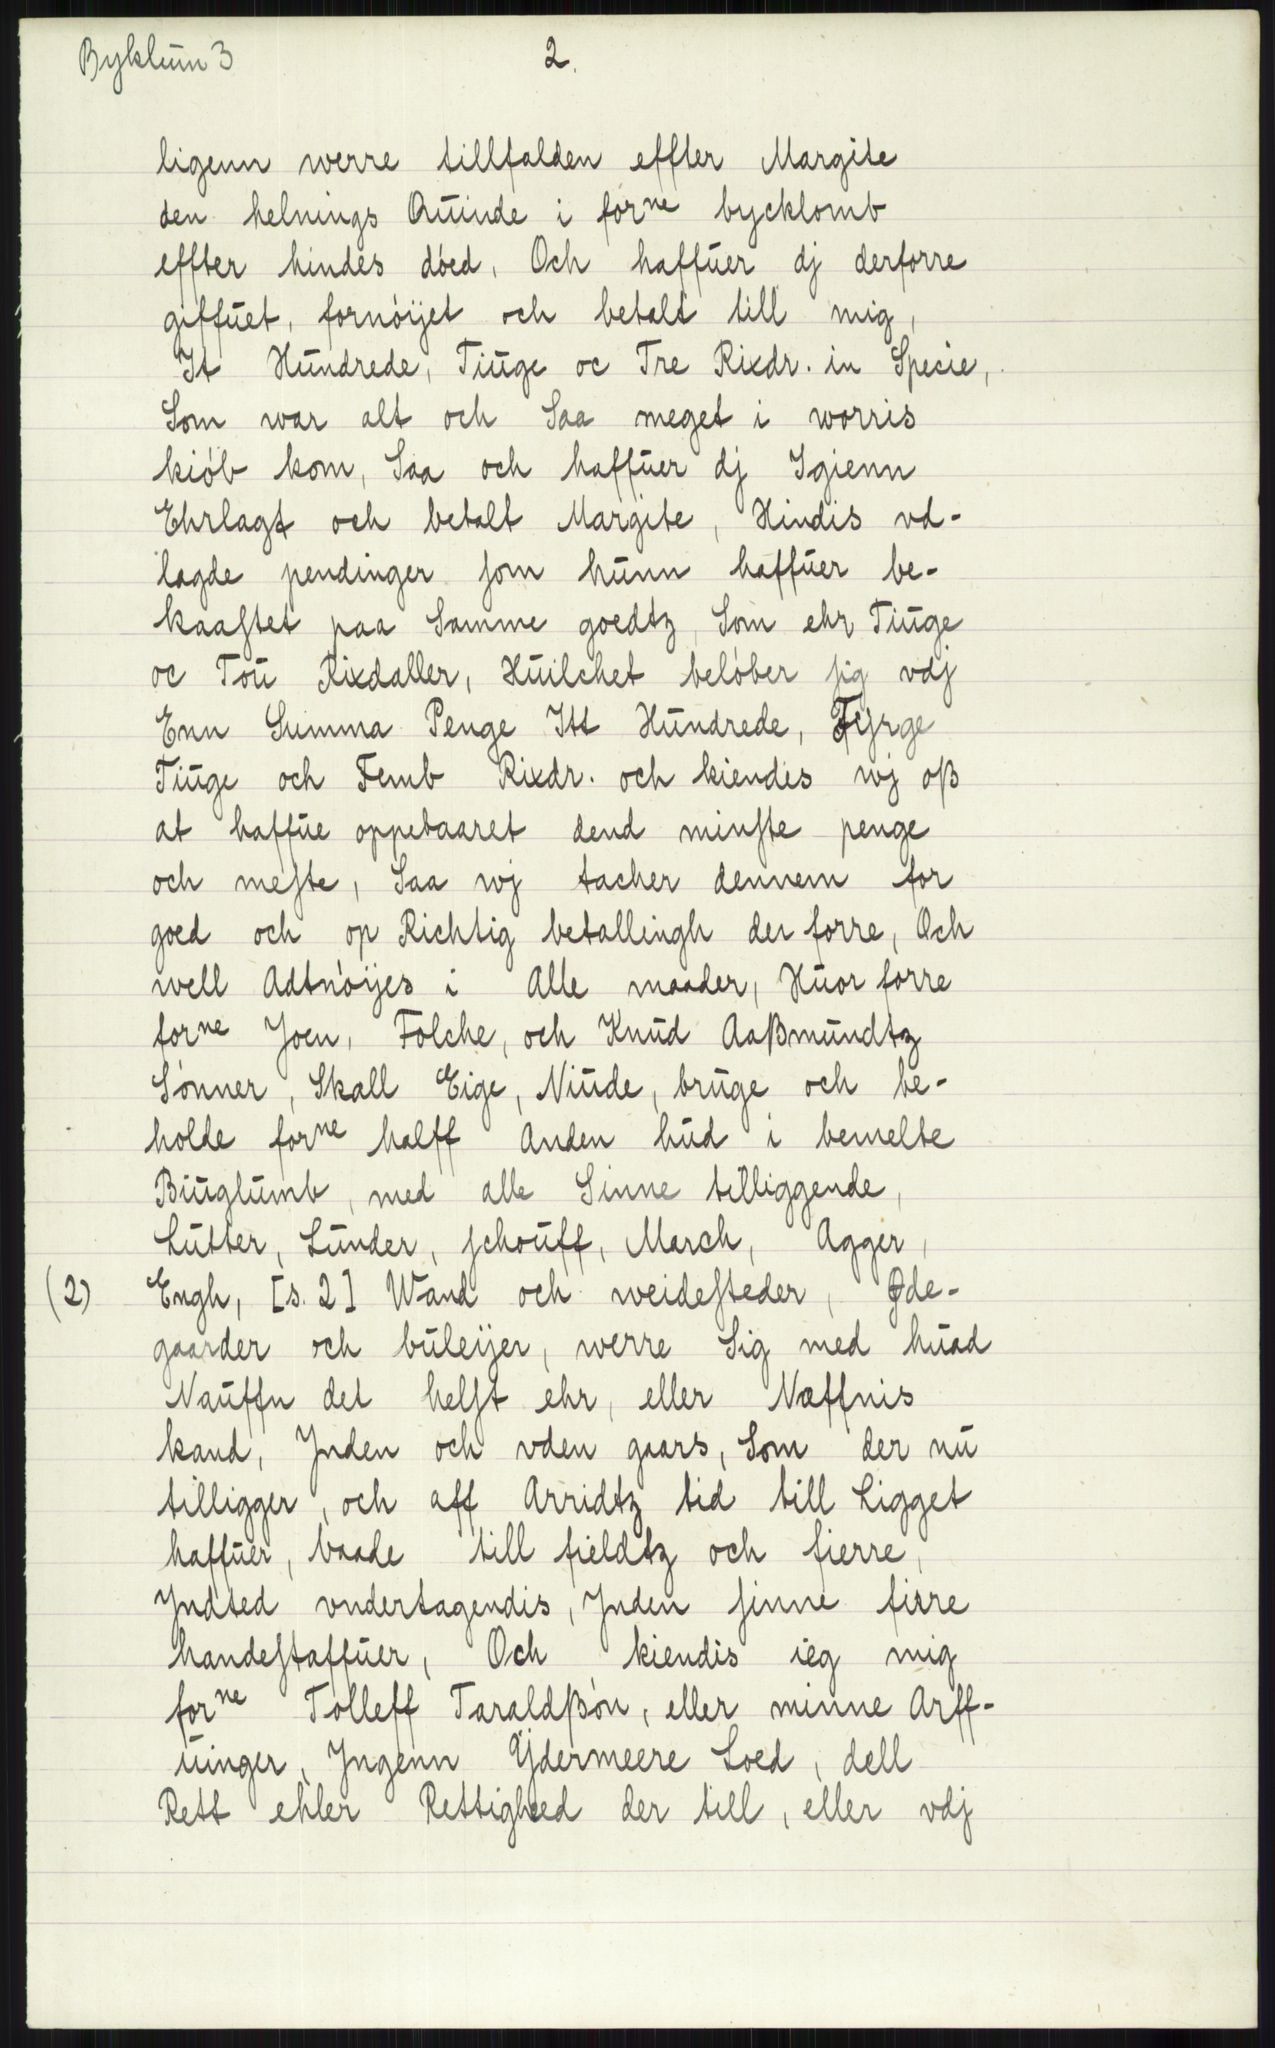 Byklum 3
2.
ligenn werre tillfalden effter Margite
den helnings Quinde i forne bycklomb
effter hindes döed, Och haffuer dj derforre
giffuet, fornöijet och betalt till mig,
It Hundrede, Tiuge oc Tre Rixdr. in Specie,
Som war alt och Saa meget i worris
kiöb kom, Saa och haffuer dj Igienn
Ehrlagt och betalt Margite, Hindis vd-
lagde pendinger som hunn haffuer be-
kaastet paa Samme goedtz, Som ehr Tiuge
oc Tou Rixdaller, Huilchet belöber sig vdj
Enn Summa Penge Itt Hundrede, Fyrge
Tiuge och Femb Rixdr. och kiendes wj oß
at haffue oppebaaret dend minste penge
och meste, Saa wj tacher dennem for
goed och op Richtig betallingh der forre, Och
well Adtnöijes i Alle maader, Huor forre
forne Joen, Folche, och Knud Aaßmundtz
Sönner, Skall Eige, Niude, bruge och be-
holde forne halff Anden hud i bemelte
Biuglumb, med alle Sinne tilliggende,
Lutter, Lunder, schouff, March, Agger,
(2) Engh, [s. 2] Wand och weidesteder, Øde-
gaarder och buleijer, werre Sig med huad
Nauffn det helst ehr, eller Næffnis
kand, Jnden och vden gaars, Som der nu
tilligger, och aff Arridtz tid till Ligget
haffuer, baade till fieldtz och fierre,
Jndted vndertagendis, Jnden sinne firre
handestaffuer, Och kiendis ieg mig
forne Tolleff Taraldßön, eller minne Arff-
uinger, Jngenn Ÿdermeere Loed, dell
Rett ehler Rettigheed der till, eller vdj